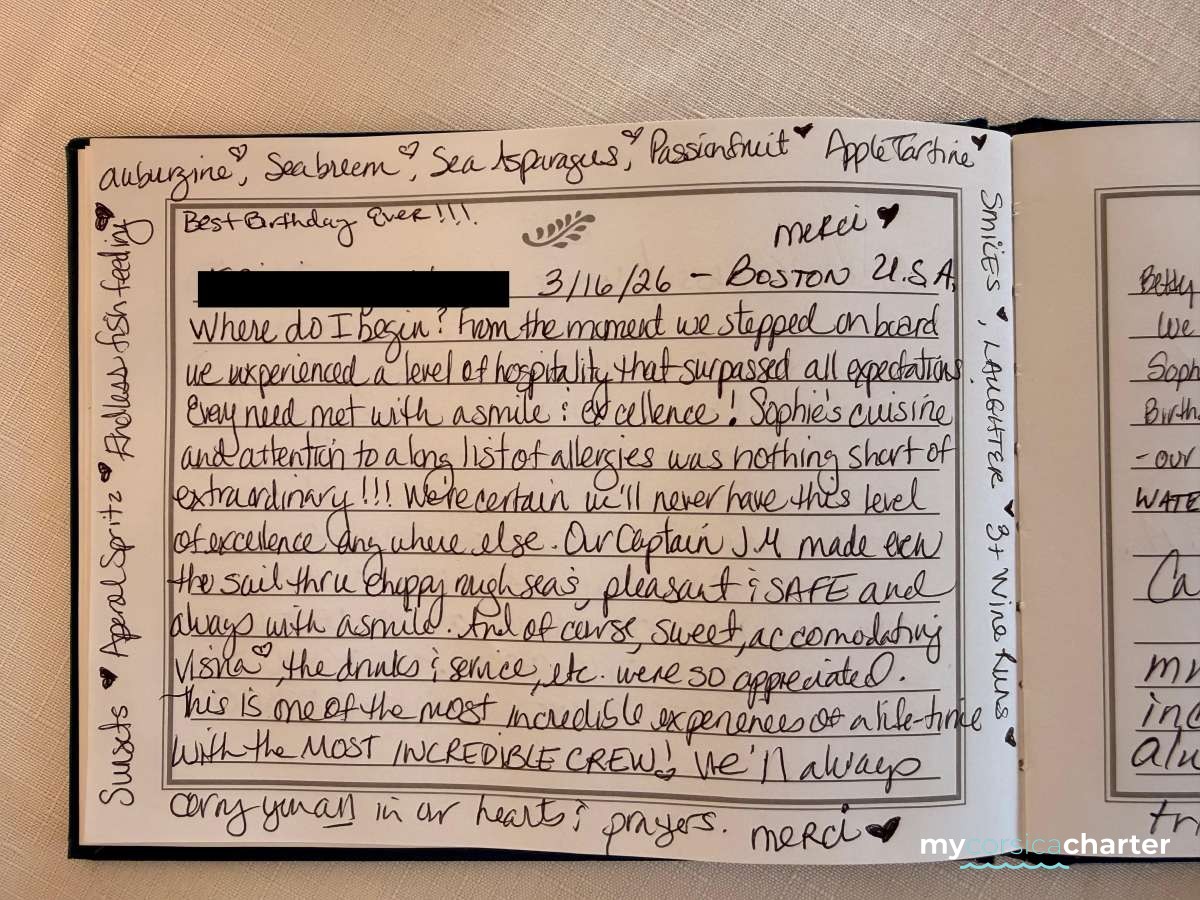 auburzine ♡, Seabreem ♡, Sea Asparagus ♡, Passionfruit ♥ Apple Tartine ♥
Best Birthday Ever!!!
merci ♥
3/16/26 - BOSTON U.S.A.
Where do I begin? From the moment we stepped on board
we experienced a level of hospitality that surpassed all expectations.
Every need met with a smile & excellence! Sophie's cuisine
and attention to a long list of allergies was nothing short of
extraordinary!!! We're certain we'll never have this level
of excellence any where else. Our Captain J.M made even
the sail thru choppy rough seas, pleasant & SAFE and
always with a smile. And of course, sweet, accomodating
Visna ♡, the drinks & service, etc. were so appreciated.
This is one of the most incredible experiences of a life-time
with the MOST INCREDIBLE CREW! We'll always
carry you all in our hearts & prayers. merci ♥
Sunsets ♥ Apperal Spritz ♥ Endless fish feeding ♥
SMILES ♥, LAUGHTER ♥ 3+ Wine Runs ♥
Betty
We
Soph
Birth
- our
WATE
Ca
inc
alw
mycorsicacharter